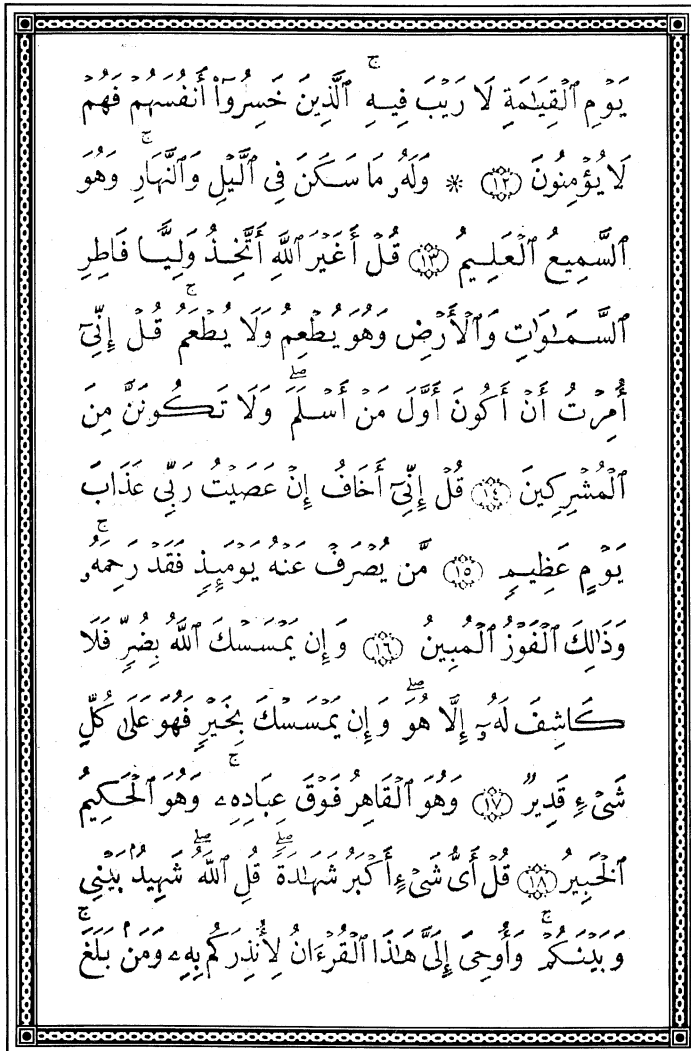 يَوْمِ ٱلْقِيَـٰمَةِ لَا رَيْبَ فِيهِ ۚ ٱلَّذِينَ خَسِرُوٓا۟ أَنفُسَهُمْ فَهُمْ
لَا يُؤْمِنُونَ ﴿١٢﴾ * وَلَهُۥ مَا سَكَنَ فِى ٱلَّيْلِ وَٱلنَّهَارِ ۚ وَهُوَ
ٱلسَّمِيعُ ٱلْعَلِيمُ ﴿١٣﴾ قُلْ أَغَيْرَ ٱللَّهِ أَتَّخِذُ وَلِيًّا فَاطِرِ
ٱلسَّمَـٰوَٰتِ وَٱلْأَرْضِ وَهُوَ يُطْعِمُ وَلَا يُطْعَمُ ۚ قُلْ إِنِّىٓ
أُمِرْتُ أَنْ أَكُونَ أَوَّلَ مَنْ أَسْلَمَ ۖ وَلَا تَكُونَنَّ مِنَ
ٱلْمُشْرِكِينَ ﴿١٤﴾ قُلْ إِنِّىٓ أَخَافُ إِنْ عَصَيْتُ رَبِّى عَذَابَ
يَوْمٍ عَظِيمٍ ﴿١٥﴾ مَّن يُصْرَفْ عَنْهُ يَوْمَئِذٍ فَقَدْ رَحِمَهُۥ ۚ
وَذَٰلِكَ ٱلْفَوْزُ ٱلْمُبِينُ ﴿١٦﴾ وَإِن يَمْسَسْكَ ٱللَّهُ بِضُرٍّ فَلَا
كَاشِفَ لَهُۥٓ إِلَّا هُوَ ۖ وَإِن يَمْسَسْكَ بِخَيْرٍ فَهُوَ عَلَىٰ كُلِّ
شَىْءٍ قَدِيرٌ ﴿١٧﴾ وَهُوَ ٱلْقَاهِرُ فَوْقَ عِبَادِهِۦ ۚ وَهُوَ ٱلْحَكِيمُ
ٱلْخَبِيرُ ﴿١٨﴾ قُلْ أَىُّ شَىْءٍ أَكْبَرُ شَهَـٰدَةً ۖ قُلِ ٱللَّهُ ۖ شَهِيدٌۢ بَيْنِى
وَبَيْنَكُمْ ۚ وَأُوحِىَ إِلَىَّ هَـٰذَا ٱلْقُرْءَانُ لِأُنذِرَكُم بِهِۦ وَمَنۢ بَلَغَ ۚ